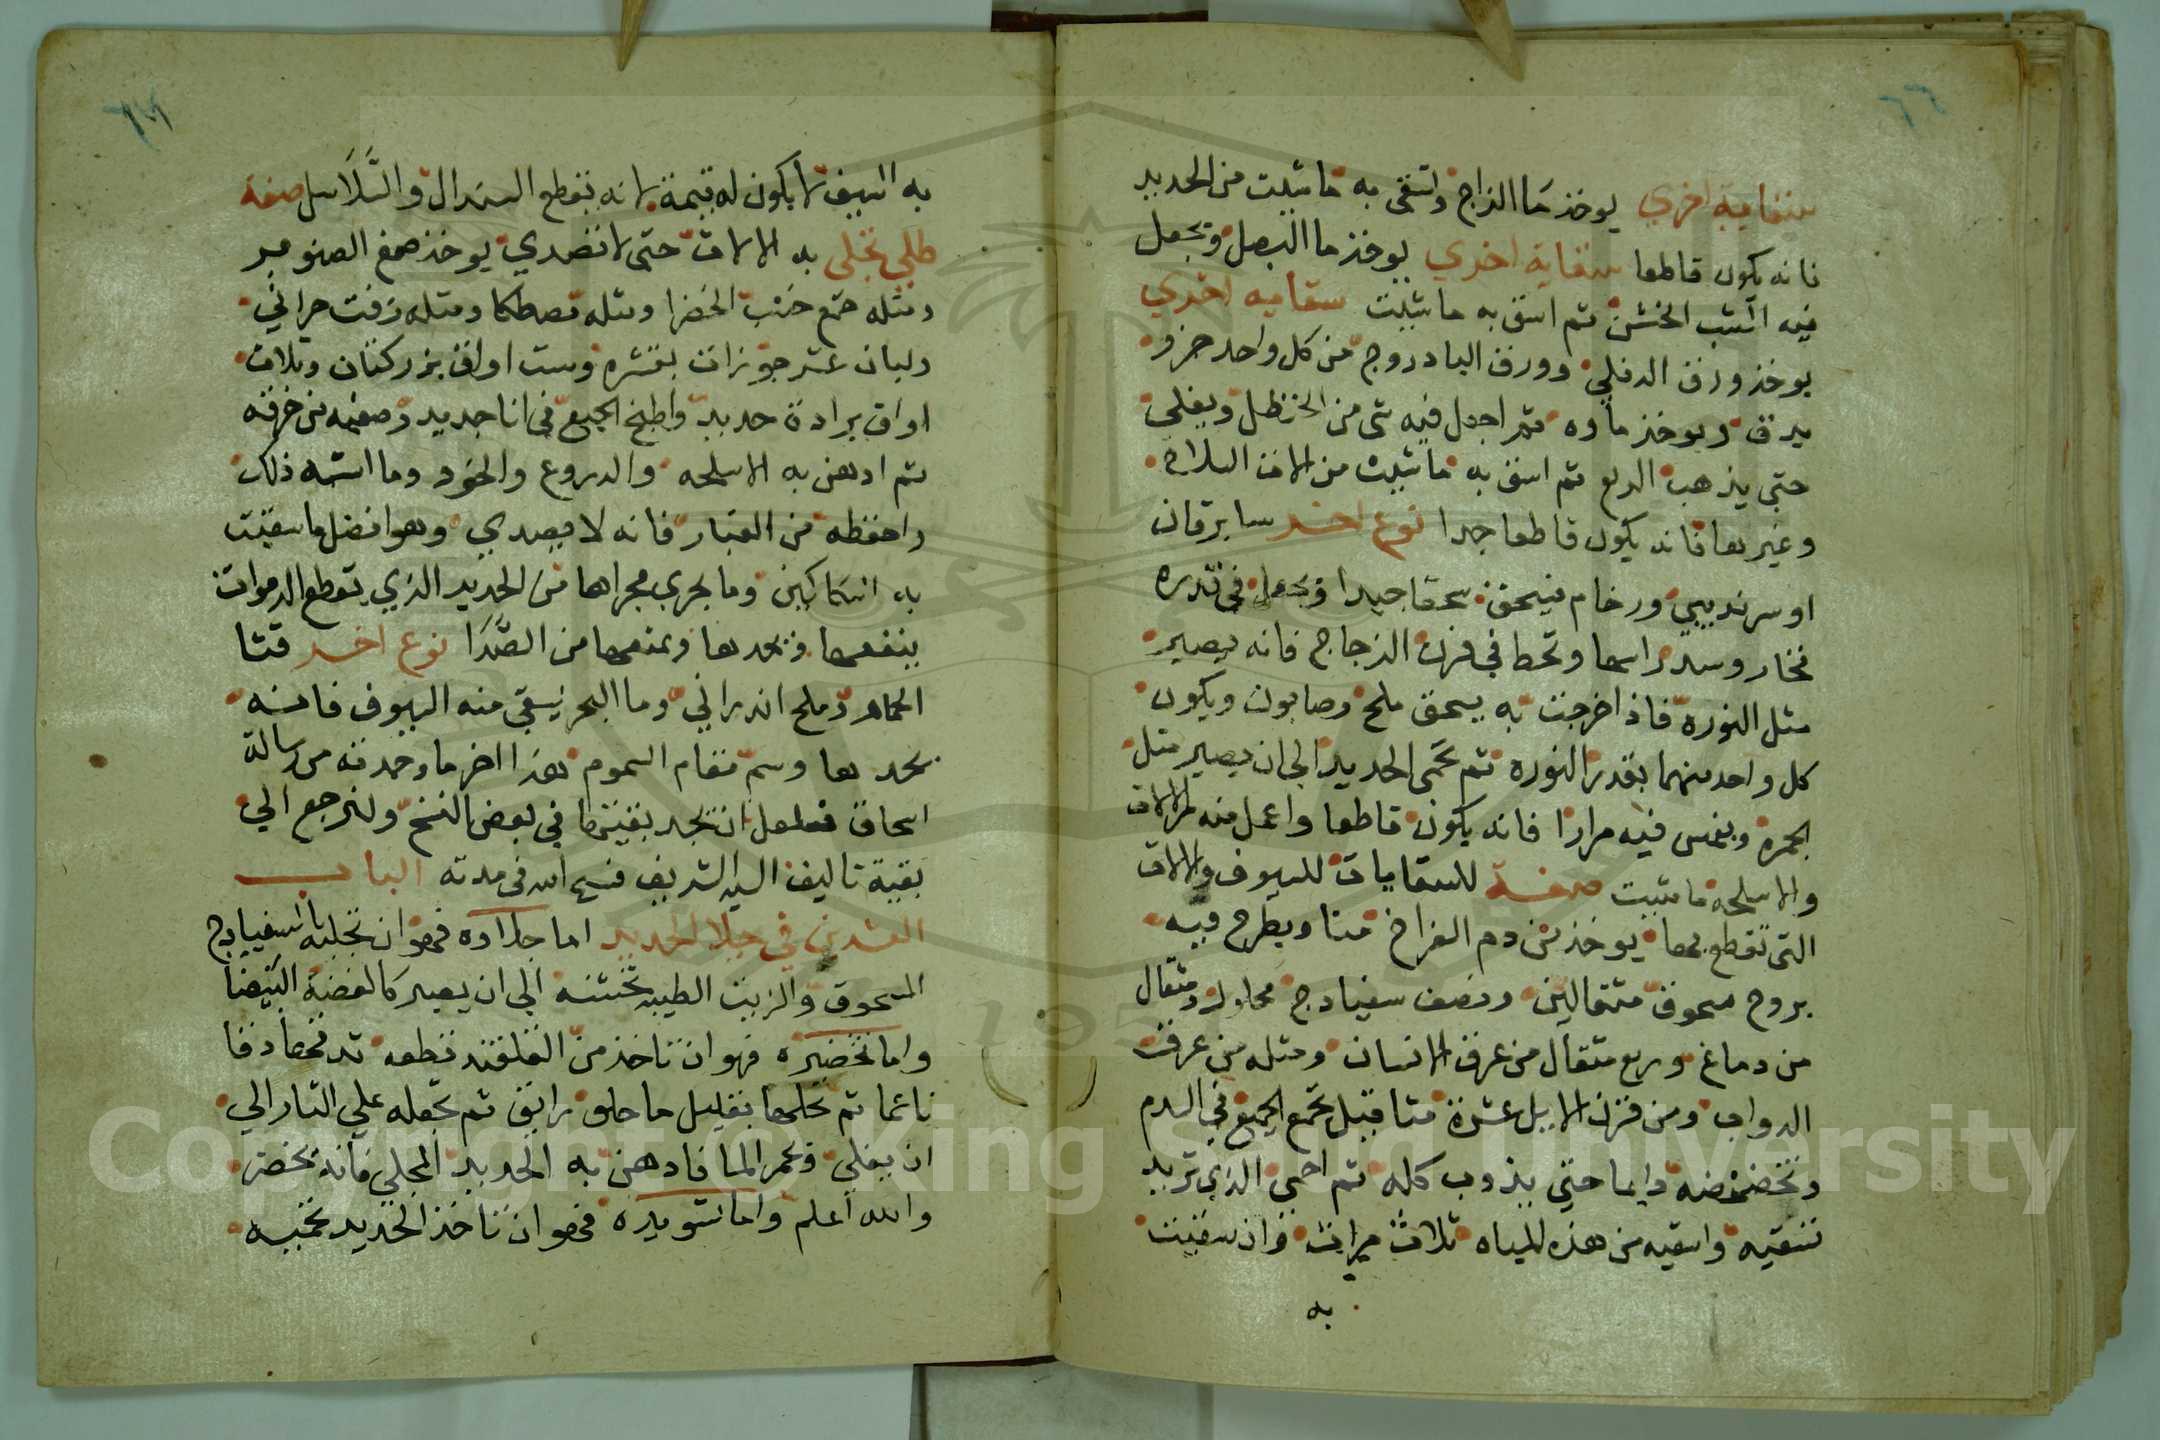 سقاية اخري يوخذ ما الزاج وتسقي به ما شيت من الحديد
فانه يكون قاطعا سقاية اخري يوخذ ما البصل ويجعل
فيه الشب الخشن ثم اسق به ما شيت سقايه اخري
يوخذ ورق الدفلي وورق البادروج من كل واحد جزو
يدق ويوخذ ماوه ثم اجعل فيه شي من الحنظل ويغلي
حتي يذهب الربع ثم اسق به ما شيت من الات السلاح
وغيرها فانه يكون قاطعا جدا نوع اخر سابرقان
او سرنديبي ورخام فيسحق سحقا جيدا ويجعل في قدره
فخار وسد راسها وتحط في فرن الزجاج فانه يصير
مثل النوره فاذا خرجت به يسحق ملح وصابون ويكون
كل واحد منهما بقدر النوره ثم تحمي الحديد الي ان يصير مثل
الجمره ويغمس فيه مرارا فانه يكون قاطعا واعمل منه الالات
والاسلحه ما شيت صفة للسقايات للسيوف والالات
التي تقطع بها يوخذ من دم الفراخ منا ويطرح فيه
بروح مسحوق مثقالين ونصف سفيادج محلول ومثقال
من دماغ وربع مثقال من عرق الانسان ومثله من عرق
الدواب ومن قرن الابل عشرة مثاقيل تجمع الجميع في الدم
وتخضخضه دايما حتي يذوب كله ثم احمي الذي تريد
تسقيه واسقيه من هذه المياه ثلاث مرات وان سقيت
به
به السيف لا يكون له قيمة لانه يقطع السندال والسلاسل صفة
طلي تجلي به الالات حتي لا تصدي يوخذ صمغ الصنوبر
ومثله صمغ حبت الخضرا ومثله مصطكا ومثله زفت حراني
ولبان عشر جوزات بقشره وست اواق بزر كتان وثلاث
اواق برادة حديد واطبخ الجميع في انا جديد وصفيه من خرقه
ثم ادهن به الاسلحه والدروع والخود وما اشبه ذلك
واحفظه من الغبار فانه لا يصدي وهو افضل ما سقيت
به السكاكين وما يجري مجراها من الحديد الذي يقطع الدموات
ينفعها ويحدها ويمنعها من الصدا نوع اخر قثا
الحمار وملح اندراني وما البحر يسقي منه السيوف فانه
يحدها وسم مقام السموم هذا اخر ما وجدته من رسالة
اسحاق فلعل ان تجد بقيتها في بعض النسخ ولنرجع الي
بقية تاليف السيد الشريف فسح الله في مدته الباب
العشرين في جلا الحديد اما جلاده فهو ان تجليه باسفيادج
المسحوق والزيت الطيب بخشنه الي ان يصير كالفضة البيضا
واما تخضيره فهو ان تاخذ من القلقند قطعه تدقها دقا
ناعما ثم تحلها بقليل ما حلو رايق ثم تجعله علي النار الي
ان يغلي ويحمر الما فادهن به الحديد المجلي فانه يخضر
والله اعلم واما تسويده فهو ان تاخذ الحديد تحميه